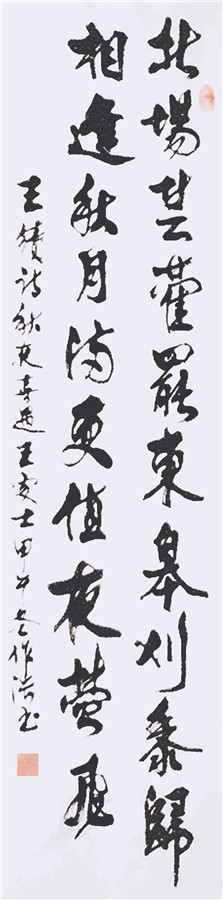 北場芸藿罷東皋刈黍歸
相逢秋月滿更值夜螢飛
王績詩秋夜喜遇王處士甲午冬作浩書